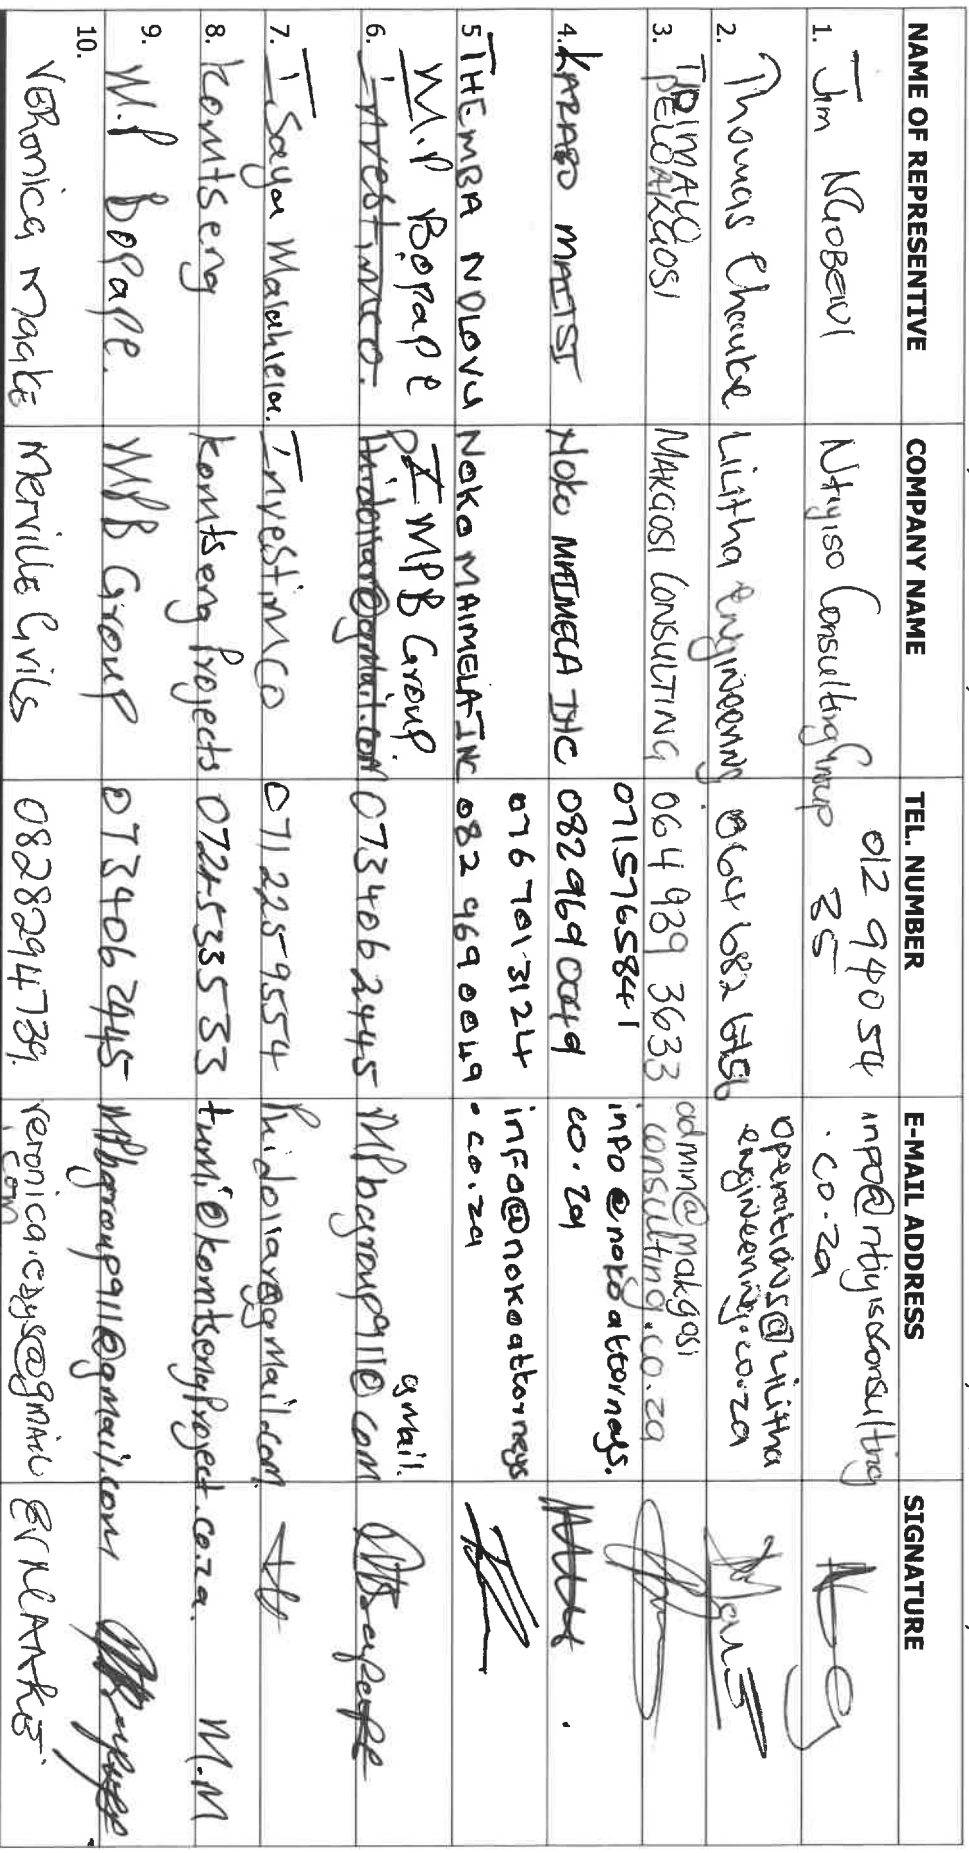 NAME OF REPRESENTIVE COMPANY NAME TEL. NUMBER E-MAIL ADDRESS SIGNATURE
1. Jim NGOBENI Ntiyiso Consulting Group 012 940 54 35 info@ntiyisoconsulting .co.za
2. Thomas Chauke Lilitha Engineering 064 682 operations@lilitha engineering.co.za
3. MAKGOSI CONSULTING 064 939 3633 admin@makgosi consulting.co.za
4. KARABO MAITSI NOKO MAIMELA INC 0715765841 0829690049 info@nokoattorneys. co.za
5 THEMBA NDLOVU NOKO MAIMELA INC 076 701 3124 082 969 0049 info@nokoattorneys .co.za
6. M.P Bopape Investimco. MPB Group. hidollar@gmail.com 0734062445 Mpbgroup911@gmail.com
7. I Sayar Malahlela. InvestimCO 0712259554 hidollar@gmail.com
8. Komtseng Komtseng Projects 0725335533 tumi@komtsengproject.co.za. M.M
9. M.P Bopape. MPB Group 0734062445 Mpbgroup911@gmail.com
10. Veronica Maake Merville Civils 0828294739. veronica.csys@gmail .com